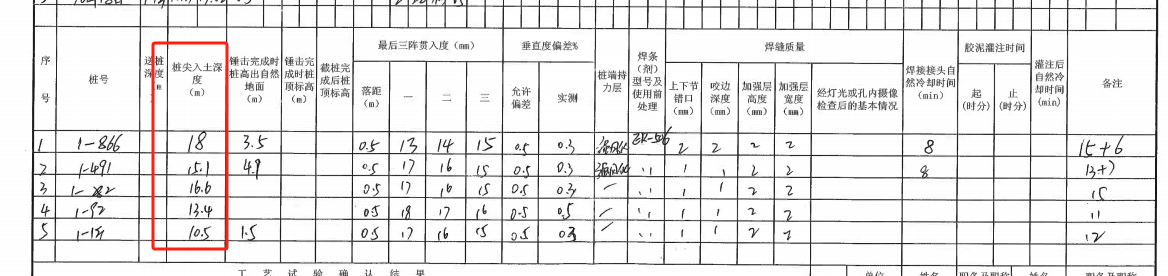 序号 桩号 送桩深度 m 桩尖入土深度 (m) 锤击完成时桩高出自然地面 (m) 锤击完成时桩顶标高 (m) 截桩完成后桩顶标高 (m) 最后三阵贯入度 (mm) 垂直度偏差% 桩端持力层 焊条(剂)型号及使用前处理 焊缝质量 焊接接头自然冷却时间 (min) 胶泥灌注时间 灌注后自然冷却时间 (min) 备注
落距 (m) 一 二 三 允许偏差 实测 上下节错口 (mm) 咬边深度 (mm) 加强层高度 (mm) 加强层宽度 (mm) 经灯光或孔内摄像检查后的基本情况 起 (时分) 止 (时分)
1 1-866 18 3.5 0.5 13 14 15 0.5 0.3 2 2 2 2 8 15+6
2 1-491 15.1 4.9 0.5 17 16 15 0.5 0.3 2 2 8 13+7
3 16.6 0.5 17 16 15 0.5 0.3 2 2 15
4 1-92 13.4 0.5 18 17 16 0.5 0.5 2 2 11
5 10.5 1.5 0.5 17 16 15 0.5 0.3 2 2 12
工艺试验确认结果 单位 姓名 职务及职称 姓名 职务及职称